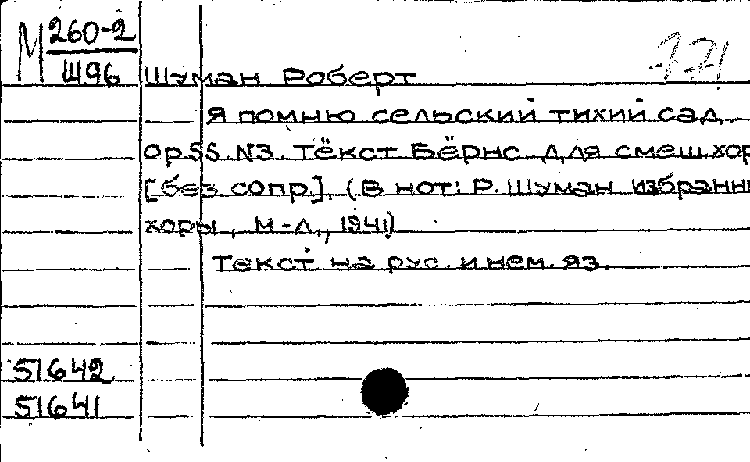 М 260-2
Ш96 Шуман Роберт
Я помню сельский тихий сад
op.55. N3. Тёкст Бёрнс. Для смеш.хор
[без сопр.]. (В нот: Р. Шуман избранны
хоры, М-Л., 1941)
Текст на рус. и нем. яз.
51642
51641